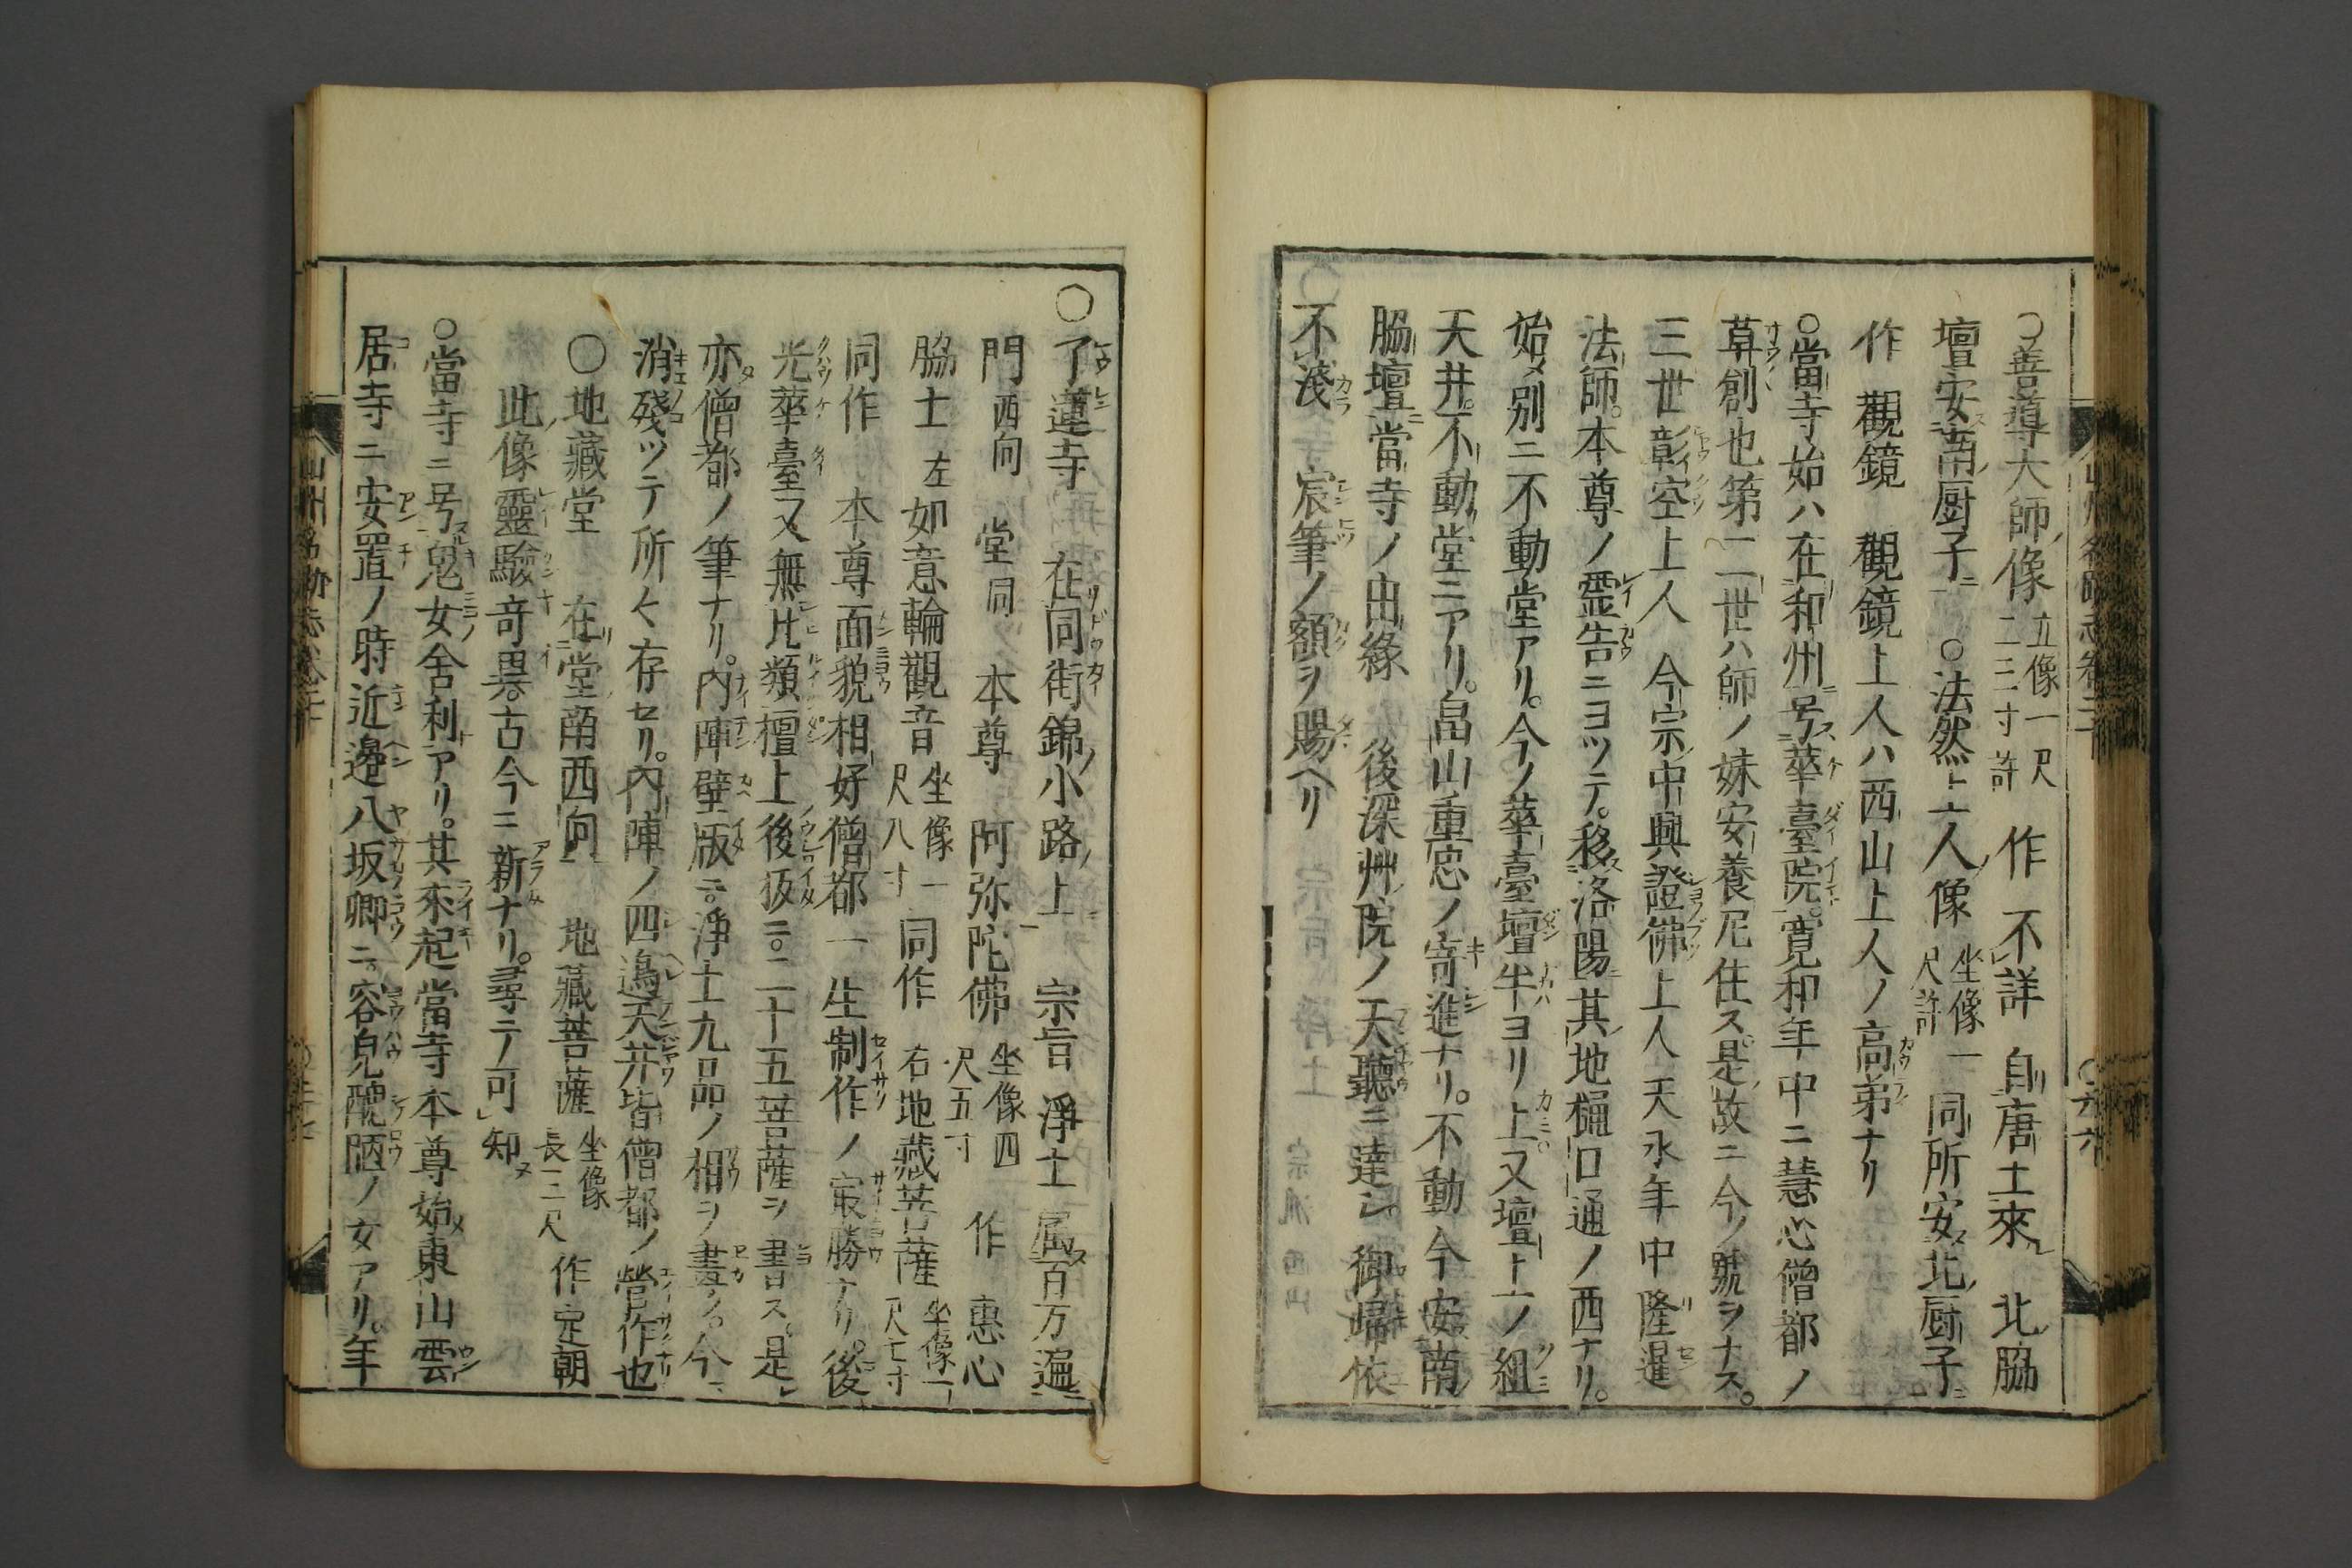 ○善導大師像 立像一尺二三寸許 作 不詳 自唐土來 北脇
壇安南厨子ニ ○法然上人像 坐像一尺許 同所安北厨子ニ
作 觀鏡 觀鏡上人ハ西山上人ノ高弟ナリ
○當寺始ハ在和州ニ号華臺院。寛和年中ニ慧心僧都ノ
草創也第二世ハ師ノ妹安養尼住ス。是故ニ今ノ號ヲナス。
三世彰空上人 今宗中興證佛上人天永年中 隆暹
法師。本尊ノ霊告ニヨツテ。移洛陽ニ其地樋口通ノ西ナリ。
始メ別ニ不動堂アリ。今ノ華臺壇半ヨリ上。又壇上ノ組
天井。不動堂ニアリ。畠山重忠ノ寄進ナリ。不動今安南
脇壇ニ當寺ノ出縁 後深艸院ノ天聽ニ達シ 御歸依
不淺 宸筆ノ額ヲ賜ヘリ
○了蓮寺 在同街錦小路上 宗旨 淨土 属百万遍ニ
門 西向 堂 同 本尊 阿弥陀佛 坐像四尺五寸 作 惠心
脇士 左如意輪觀音 坐像一尺八寸 同作 右地藏菩薩
同作 本尊面貌相好僧都一生制作ノ最勝ナリ。後
光華臺又無比類檀上後板ニ。二十五菩薩ヲ書ス。是
亦僧都ノ筆ナリ。内陣壁版ニ。淨土九品ノ相ヲ畫ク。今
消殘ツテ所々存セリ。内陣ノ四邉天井皆僧都ノ營作也
○地藏堂 在堂南西向 地藏菩薩 坐像長三尺 作 定朝
此像靈驗奇異。古今ニ新ナリ。尋テ可知
○當寺ニ号鬼女舍利アリ。其來起當寺本尊始東山雲
居寺ニ安置ノ時近邊八坂卿ニ。容皃醜陋ノ女アリ。年